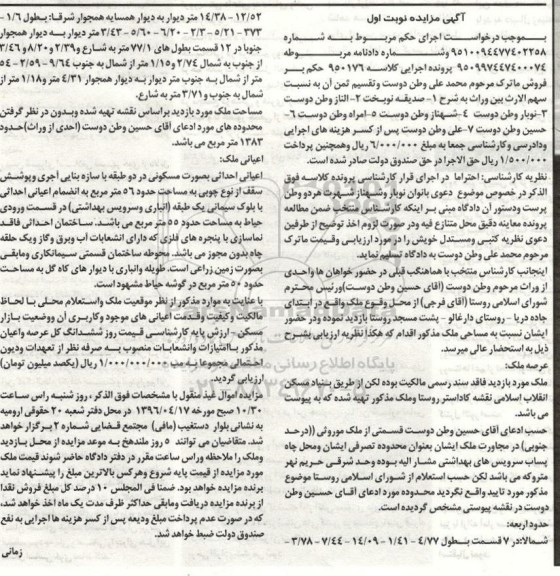 آگهی مزایده نوبت اول
بموجب درخواست اجرای حکم مربوط به شماره
۹۵۱۰۰۹۴۴۷۷۴۰۲۲۵۸ وشماره دادنامه مربوطه
۹۵۰۹۹۷۴۴۷۷۴۰۰۰۷۴ پرونده اجرایی کلاسه ۹۵۰۱۷۶ حکم بر
فروش ماترک مرحوم محمد علی وطن دوست وتقسیم ثمن آن به نسبت
سهم الارث بین وراث به شرح ۱- صدیقه نوبخت ۲- الناز وطن دوست
۳- نوبار وطن دوست ۴- شهناز وطن دوست ۵- امراه وطن دوست ۶-
حسین وطن دوست ۷- علی وطن دوست پس از کسر هزینه های اجرایی
ودادرسی و کارشناسی جمعا به مبلغ ۶/۰۰۰/۰۰۰ ریال وهمچنین پرداخت
۱/۵۰۰/۰۰۰ ریال حق الاجرا در حق صندوق دولت صادر شده است.
نظریه کارشناسی: احتراما در اجرای قرار کارشناسی پرونده کلاسه فوق
الذکر در خصوص موضوع دعوی بانوان نوبار وشهناز شهرت هر دو وطن
پرست ودستور آن دادگاه مبنی بر اینکه کارشناس منتخب ضمن مطالعه
پرونده معاینه دقیق محل متنازع فیه ودر صورت لزوم اخذ توضیح از طرفین
دعوی نظریه کتبی ومستدل خویش را در مورد ارزیابی وقیمت ماترک
مرحوم محمد علی وطن دوست به دادگاه تسلیم نماید.
اینجانب کارشناس منتخب با هماهنگی قبلی در حضور خواهان ها واحدی
از وراث مرحوم وطن دوست (آقای حسین وطن دوست) ورئیس محترم
شورای اسلامی روستا (آقای فرجی) از محل وقوع ملک واقع در ابتدای
جاده دریا - روستای دارغالو - پشت مسجد روستا بازدید نموده ودر حضور
ایشان نسبت به مساحی ملک مذکور اقدام که هکذا نظریه ارزیابی بشرح
ذیل به استحضار عالی میرسد.
عرصه ملک:
ملک مورد بازدید فاقد سند رسمی مالکیت بوده لکن از طریق بنیاد مسکن
انقلاب اسلامی نقشه کاداستر روستا وملک مذکور تهیه شده که به پیوست
می باشد.
حسب ادعای آقای حسین وطن دوست قسمتی از ملک موروثی ((درحد
جنوبی) در مجاورت ملک ایشان بعنوان محدوده تصرفی ایشان ومحل چاه
پساب سرویس های بهداشتی مشار الیه بوده وحد شرقی حریم نهر
متروکه می باشد لکن حسب استعلام از شورای اسلامی روستا موضوع
مذکور مورد تایید واقع نگردید محدوده مورد ادعای اقای حسین وطن
دوست در نقشه پیوستی مشخص گردیده است.
حدود اربعه:
شمالا: در ۷ قسمت بطول ۴/۷۷ - ۱/۴۱ - ۱۴/۰۹ - ۷/۴۴ - ۳/۷۸ -
۱۲/۵۲ - ۱۴/۳۸ متر دیوار به دیوار همسایه همجوار شرقا: بطول ۱/۶ -
۳۷۳ - ۵/۲۱ - ۲/۳ - ۶/۲۰ - ۵/۶۰ - ۲/۴۳ متر دیوار به دیوار همجوار
جنوبا در ۱۲ قسمت بطول های ۷۷/۱ متر به شارع و ۲/۳۹ و ۸/۲۰ و ۳/۴۶
از جنوب به شمال ۲/۷۴ و ۱/۱۵ متر از شمال به جنوب ۹/۶۴ - ۲/۵۹ - ۵۴
متر از شمال به جنوب متر دیوار به دیوار همجوار ۴/۳۱ متر و ۱/۱۸ متر از
شمال به جنوب و ۳/۷۱ متر به شارع.
مساحت ملک مورد بازدید براساس نقشه تهیه شده وبدون در نظر گرفتن
محدوده های مورد ادعای آقای حسین وطن دوست (احدی از وراث) حدود
۱۳۸۳ متر مربع می باشد.
اعیانی ملک:
اعیانی احداثی بصورت مسکونی در دو طبقه با سازه بنایی آجری وپوشش
سقف از نوع چوبی به مساحت حدود ۵۶ متر مربع به انضمام اعیانی احداثی
با بلوک سیمانی یک طبقه (انباری وسرویس بهداشتی) در قسمت ورودی
حیاط به مساحت حدود ۵۵ متر مربع می باشد. ساختمان احداثی فاقد
نماسازی با پنجره های فلزی که دارای انشعابات آب وبرق وگاز ویک حلقه
چاه بدون مجوز می باشد. محوطه ساختمان قسمتی سیمانکاری ومابقی
بصورت زمین زراعی است. طویله وانباری با دیوار های کاه گل به مساحت
حدود ۵۰ متر مربع در گوشه حیاط مشهود است.
با عنایت به موارد مذکور از نظر موقعیت ملک واستعلام محلی با لحاظ
مالکیت و کیفیت وقدمت اعیانی های موجود وکاربری آن ووضعیت بازار
مسکن - ارزش پایه کارشناسی قیمت روز ششدانگ کل عرصه واعیان
مذکور با امتیازات وانشعابات منصوب به صرفه نظر از تعهدات ودیون
احتمالی مجموعا به مبلغ ۱/۰۰۰/۰۰۰/۰۰۰ ریال (یکصد میلیون تومان)
ارزیابی گردید.
مزایده اموال غیر منقول با مشخصات فوق الذکر، روز شنبه راس ساعت
۱۰/۳۰ صبح مورخه ۱۳۹۶/۰۴/۱۷ در محل دفتر شعبه ۲۰ حقوقی ارومیه
به نشانی بلوار دستغیب (مافی) مجتمع قضایی شماره ۲ برگزار خواهد
شد. متقاضیان می توانند ۵ روز ملندهخ به موعد مزایده از محل بازدید
وملک را ملاحظه وراس ساعت مقرر در دفتر دادگاه حاضر شوند قیمت ملک
مورد مزایده از قیمت پایه شروع وهر کس بالاترین مبلغ را پیشنهاد نماید
برنده مزایده خواهد بود. ضمنا فی المجلس ۱۰ درصد کل مبلغ فروش نقدا
از برنده مزایده دریافت ومابقی حداکثر ظرف مدت یک ماه اخذ خواهد شد،
که در صورت عدم پرداخت مبلغ ودیعه پس از کسر هزینه ها اجرایی به نفع
صندوق دولت ضبط خواهد شد.
زمانی